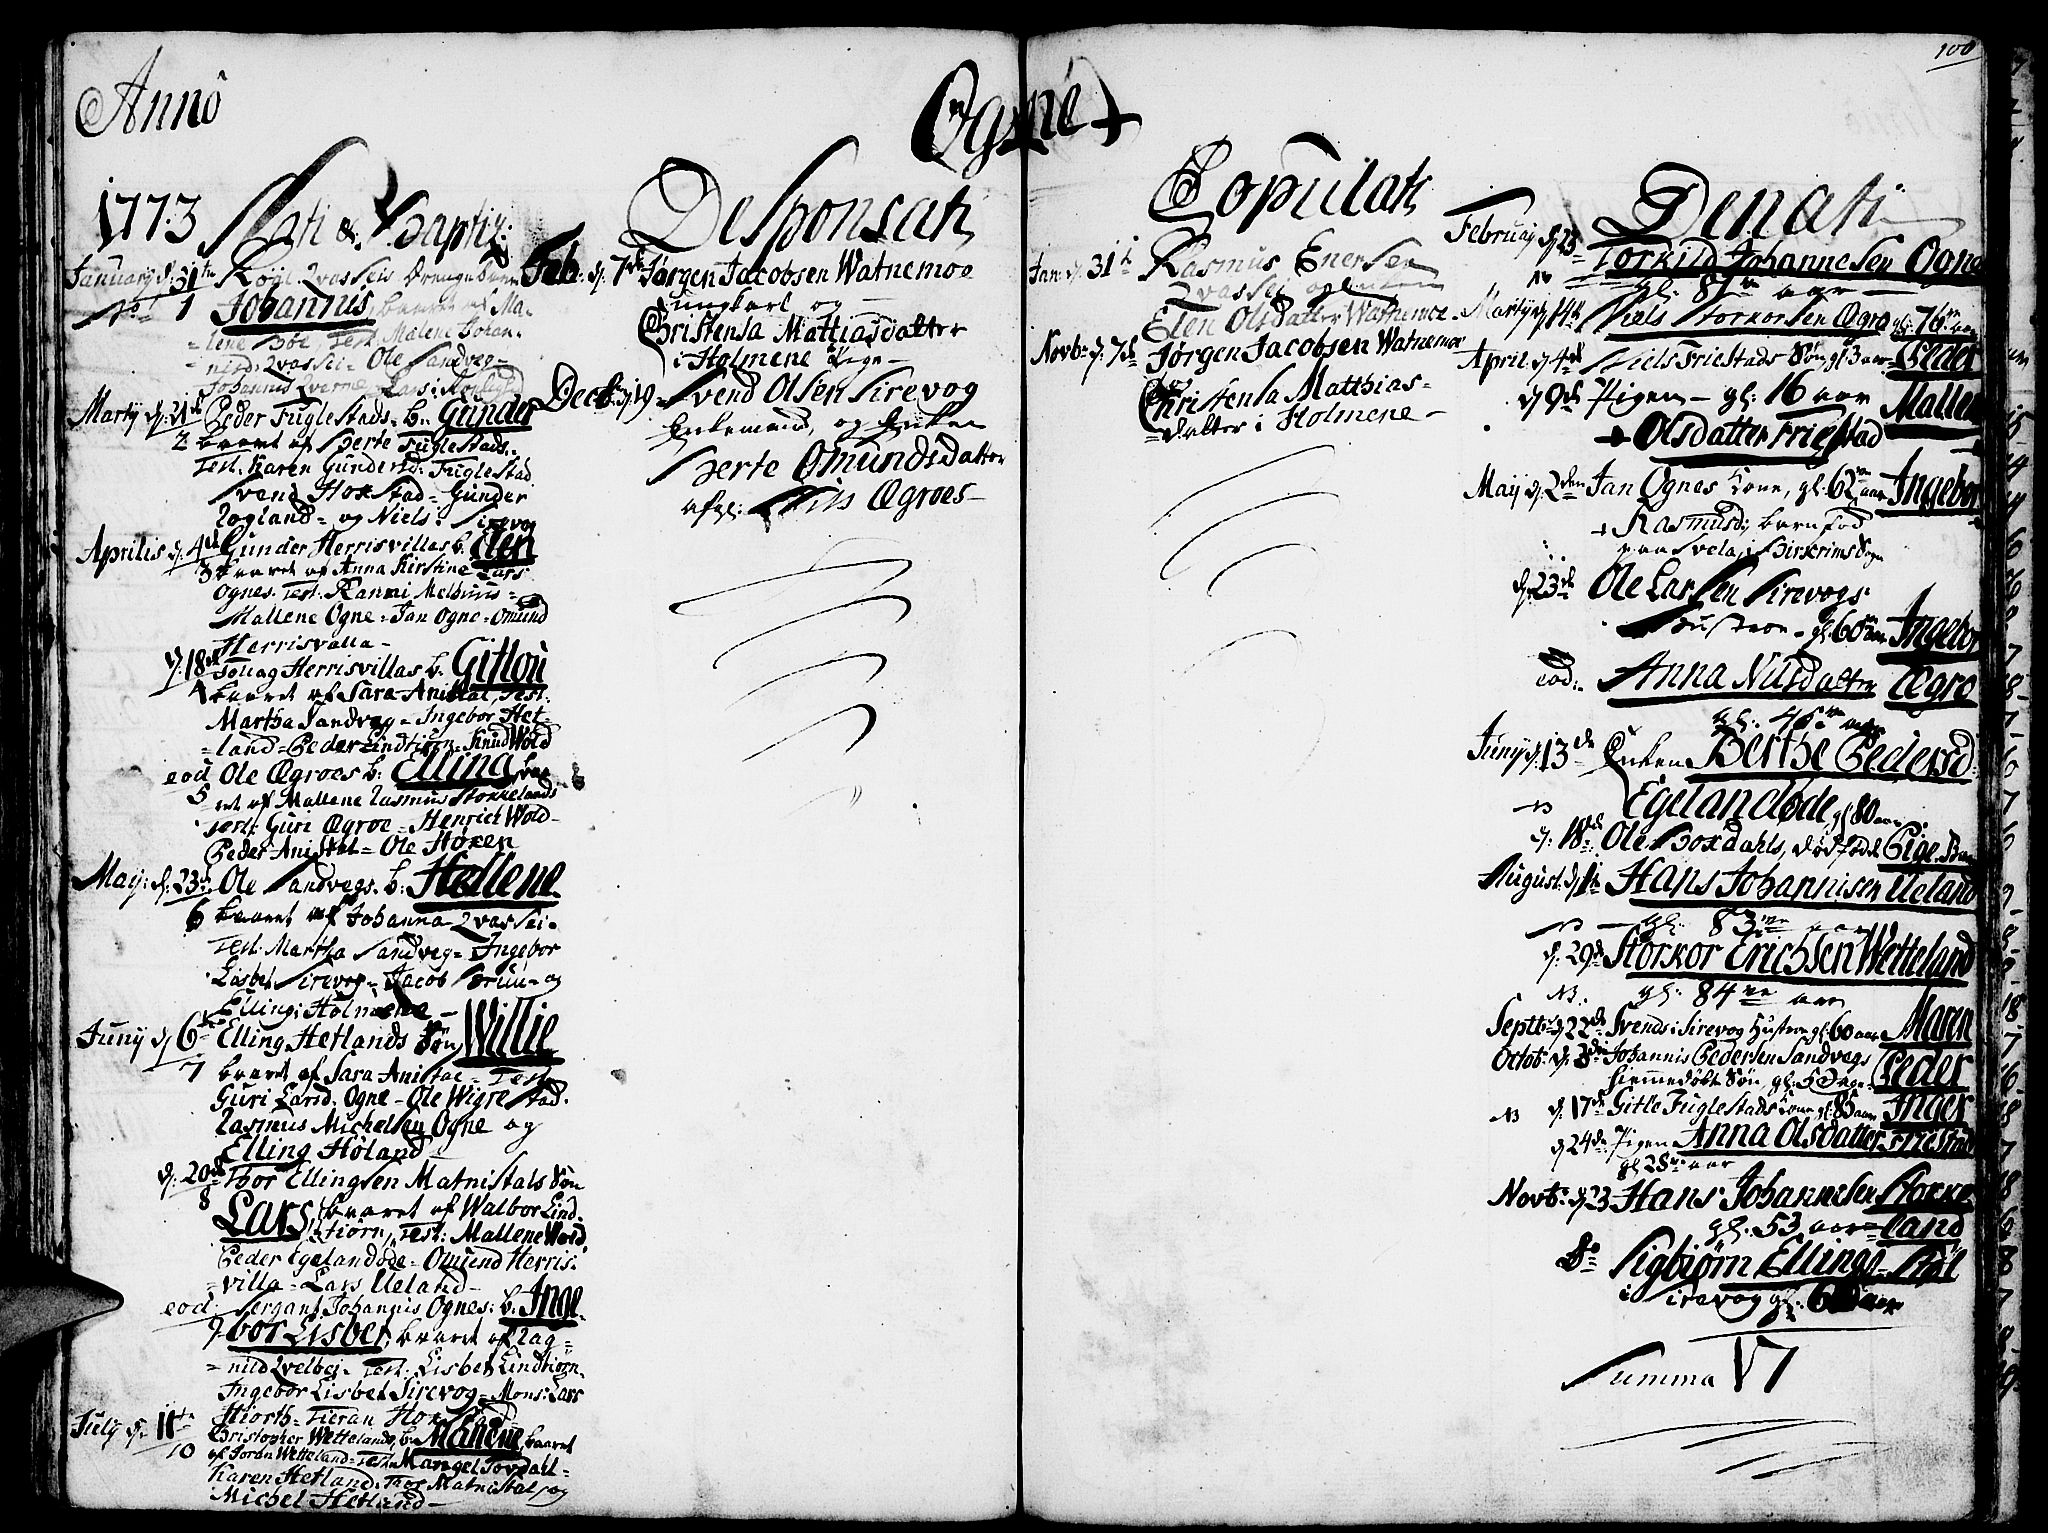 100
Annô
Ogne
1773
Nati & Baptiz:
January d: 31te Rogl Qvasseis drengebarn
No 1 Johannus, baaret af Ma-
lene Böe, Test. Malene Johan-
nisd: Qvassei- Ole Sandveg-
Johannis Qverne- Lars
Martÿ d: 21de Peder Fuglestads b: Gunder
2 baaret af Berte Fuglestads.
Test: Karen Gundersd: Fuglestad
Svend Hoxstad= Gunder
Rogland= og Niels: Sirevog
Aprilis d: 4de Gunder Herrisvillas b: Elen
3 baaret af Anna Kirstine Lars
Ognes. Test: Ranni Melhuus=
Mallene Ogne= Jan Ogne= Omund
Herrisvalla-
d: 18de Tollag Herrisvillas b. Gitlou
4 baaret af Sara Anistal, Test.
Martha Sandveg= Ingebor Het-
=land= Peder Lindtiörn= Knud Wold
eod Ole Ægroes b: Elling, baa
5 ret af Mallene Rasmus Stokkelands
Test: Guri Ægroe= Henrich Wold-
Peder Anistal= Ole Höxen
Maÿ: d: 23de Ole Sandvegs. b: Hellene
6 baaret af Johanna Qvassei-
Test: Martha Sandveg= Ingebor
Lisbet Sirevog- Jacob Bruun- og
Elling: Holmene-
Junÿ d 6te Elling Hetlands Sön Willie
7 baaret af Sara Anistal= Test-
Guri Larsd. Ogne- Ole Wigrestad.
Rasmus Michelsen Ogne og
Elling Höland-
d: 20de Thor Ellingsen Matnistals Sön
8 Lars, baaret af Walbor Lind-
tiörn, Test: Mallene Wold
Peder Egelandsöe- Omund Herris-
=villa- Lars Ueland-
eod: Sergant Johannis Ognes: b. Inge-
9. bor Lisbet, baaret af Rag=
=nild Qvelbei- Test: Lisbet Lindtiörn.
Ingebor Lisbet Sirevog= Mons: Lars
Hiorth= Tieran Hoxstad=
July d: 11te Christopher Wettelands b. Malene, baaret
10 af Joran Wetteland= Test: Mangel Tovdahl=
Karen Hetland. Thor Matnistal, og
Michel Hetland-
Desponsati
Feb: d. 7de Jørgen Jacobsen Watnemoe
ungkarl og
Christensa Mattiasdatter
i Holmene Pige-
Decb: d 19- Svend Olsen Sirevog
Enkemand, og Enken
Berte Omundsdatter
afgl: Nils Ægroes-
Copulati
Jan: d: 31te Rasmus Enersen
Qvassei og Enken
Elen Olsdatter Watnemoe
Novb: d: 7de Jørgen Jacobsen Watnemoe
Christensa Matthias-
=datter i Holmene-
Denati
February d 25 Torkild Johannesen Ogne
gl: 87ve aar
Martÿ d 14de Niels Storkorsen Ægro gl. 76ve aar
April d 4de Niels Friestads Sön gl 3 aar- Peder
d 9de Pigen- gl: 16 aar Mallene
Olsdatter Friestad
Maÿ d. 2den Jan Ognes Kone, gl. 62ve aar Ingebor
Rasmusd; barnfød
paa Svela, i Birkrims Sogn
d. 23de Ole Larsen Sirevogs
Hustroe- gl. 60ve aar Ingebor
eod:. Anna Nilsdatter Ægro
gl: 46ve aar
Junÿ d. 13de Enken Berthe Pedersd:
NB Egelandsöe gl 80 aar
d: 18de Ole Boxdahls, dødfødt Pige Barn
August. d 1te Hans Johannisen Ueland
gl: 83ve aar
d: 29de Storkor Erichsen Wetteland
NB. gl: 84ve aar
Septb: d 22de Svends i Sirevog Hustroe gl. 60 aar Maren
Octob: d: 3die Johannis Pedersen Sandvegs
hiemmedøbt Sön, gl: 5 Dage- Peder
NB d: 17de Gitle Fuglestads Kone gl 85 aar Inger
d 24de Pigen Anna Olsdatter Friestad
gl 28ve aar
Novb: d: 23 Hans Johannesen Stokke-
gl: 53 aar= land
do Sigbiørn Ellings-Støl
i Sirevog gl. 6 aar
Summa 17